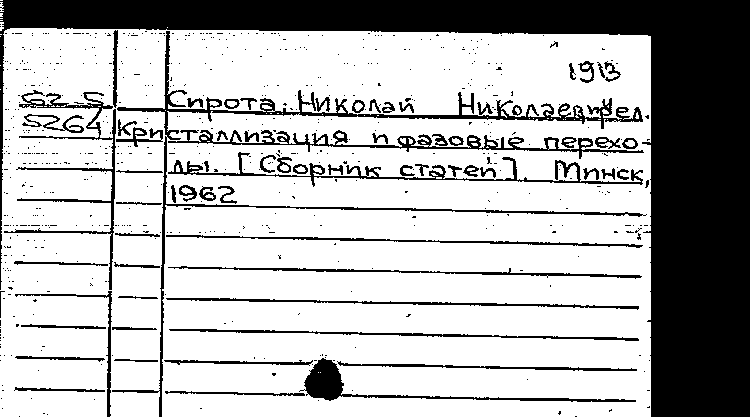 1913
62-5 Сирота, Николай Николаевич, ред.
5264 Кристаллизация и фазовые перехо-
ды. [Сборник статей]. Минск,
1962